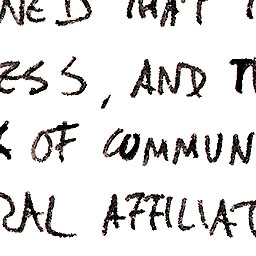 NED THAT
ESS, AND T
OF COMMUN
RAL AFFILIAT